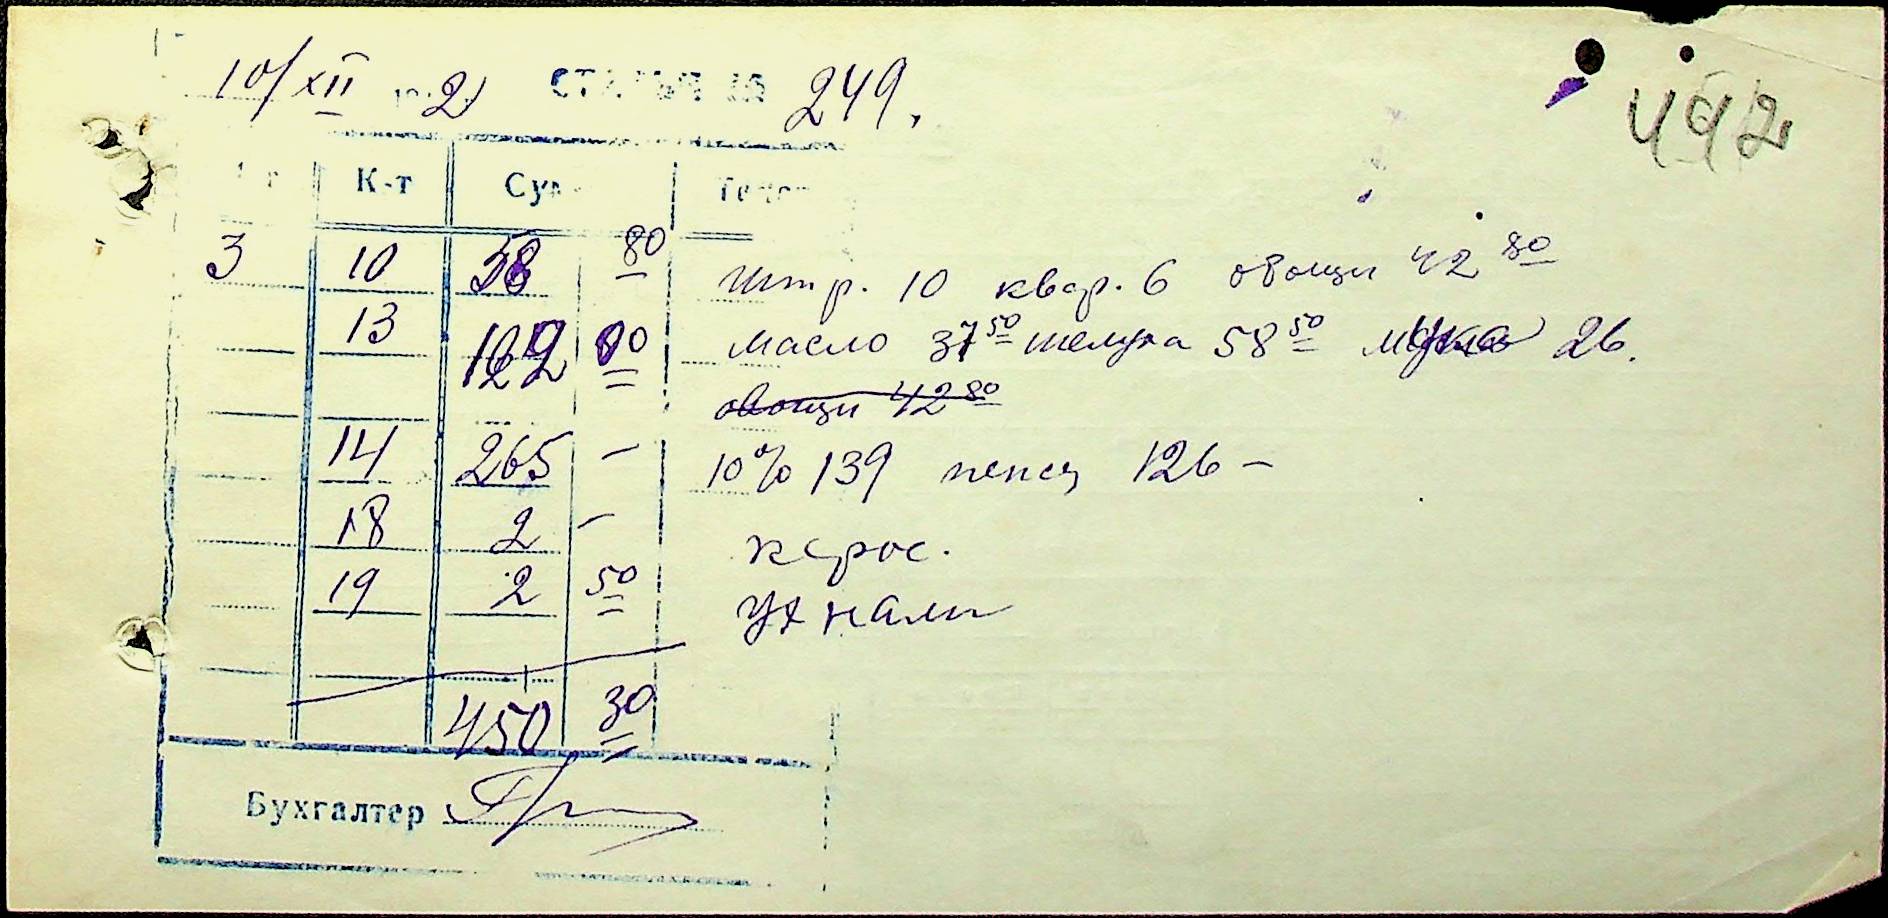 10/XII 2 СТАТЬЯ № 249.
492
К-т Сум
3 10 58 80 штр. 10 квар. 6 овощи 42 80
13 122 00 масло 37 50 шелуха 58 50 мука 26.
овощи 42 80
14 265 – 10% 139 пенсц 126 –
18 2 – керос.
19 2 50
450 30
Бухгалтер